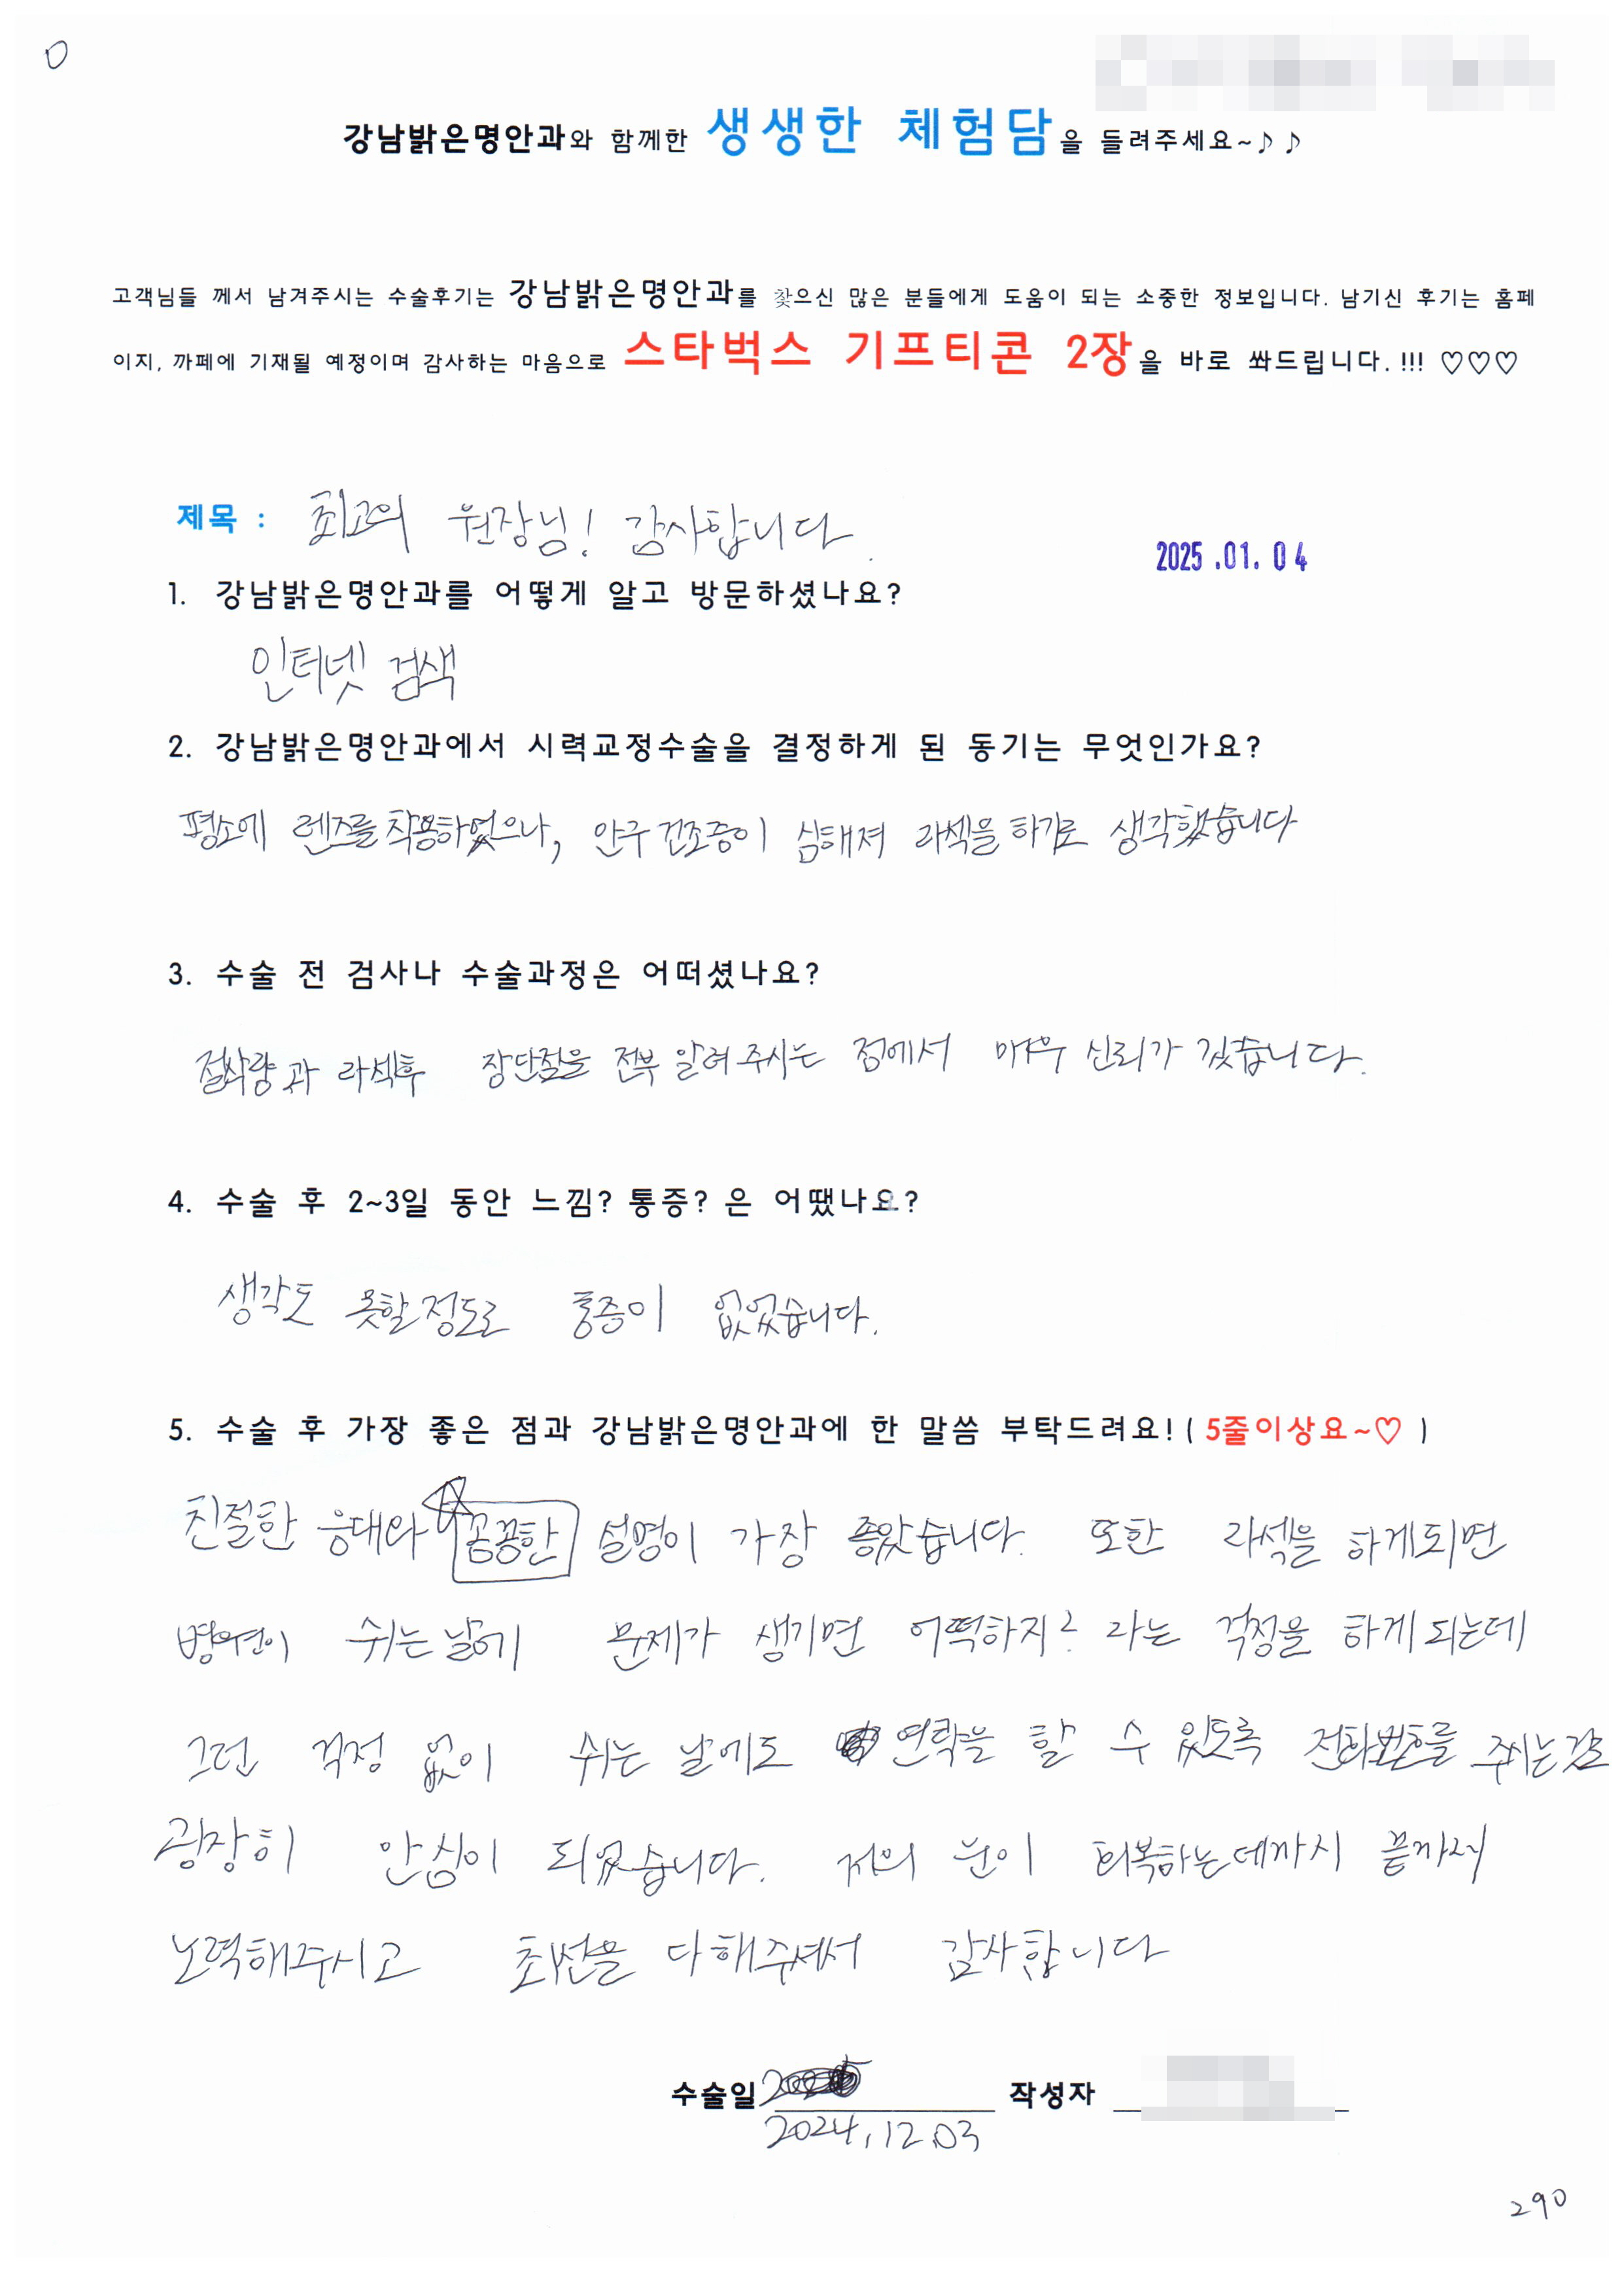 0
강남밝은명안과와 함께한 생생한 체험담을 들려주세요~♪ ♪
고객님들 께서 남겨주시는 수술후기는 강남밝은명안과를 찾으신 많은 분들에게 도움이 되는 소중한 정보입니다. 남기신 후기는 홈페
이지, 까페에 기재될 예정이며 감사하는 마음으로 스타벅스 기프티콘 2장을 바로 쏴드립니다.!!! ♡♡♡
제목 : 최고의 원장님! 감사합니다.
2025.01.04
1. 강남밝은명안과를 어떻게 알고 방문하셨나요?
인터넷 검색
2. 강남밝은명안과에서 시력교정수술을 결정하게 된 동기는 무엇인가요?
평소에 렌즈를 착용하였으나, 안구건조증이 심해져 라섹을 하기로 생각했습니다
3. 수술 전 검사나 수술과정은 어떠셨나요?
절삭량과 라섹후 장단점을 전부 알려주시는 점에서 매우 신뢰가 갔습니다.
4. 수술 후 2~3일 동안 느낌? 통증? 은 어땠나요?
생각도 못할정도로 통증이 없었습니다.
5. 수술 후 가장 좋은 점과 강남밝은명안과에 한 말씀 부탁드려요! ( 5줄이상요~♡ )
친절한 응대와 꼼꼼한 설명이 가장 좋았습니다. 또한 라섹을 하게되면
병원이 쉬는날에 문제가 생기면 어떡하지? 라는 걱정을 하게 되는데
그런 걱정 없이 쉬는 날에도 연락을 할 수 있도록 전화번호를 주시는
굉장히 안심이 되었습니다. 저의 눈이 회복하는데까지 끝까지
노력해주시고 최선을 다해주셔서 감사합니다
수술일 작성자
2024.12.03
290